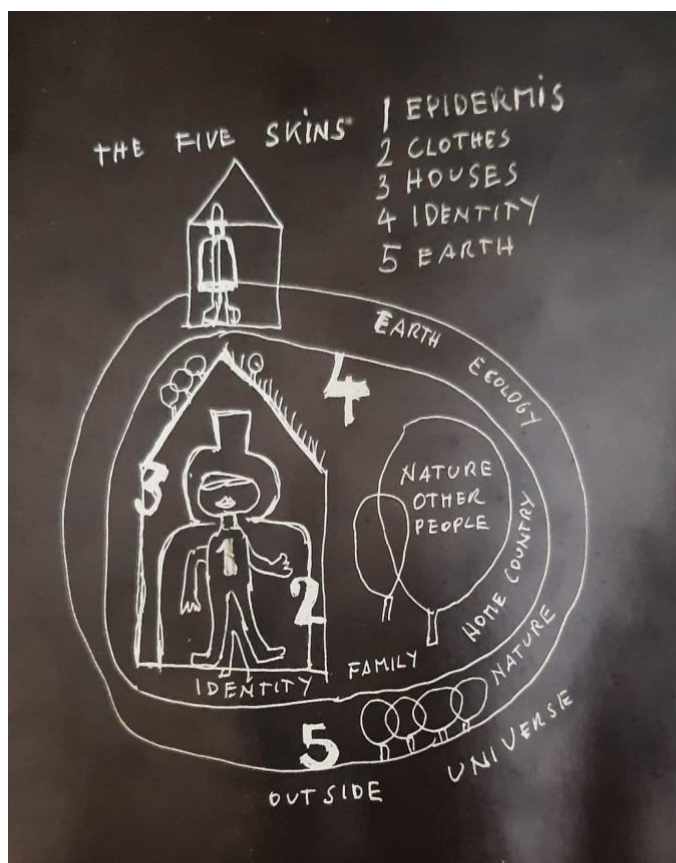 THE FIVE SKINS
1 EPIDERMIS
2 CLOTHES
3 HOUSES
4 IDENTITY
5 EARTH
EARTH ECOLOGY
4
NATURE
OTHER
PEOPLE
3
1
2
HOME COUNTRY
FAMILY
IDENTITY
NATURE
5
UNIVERSE
OUTSIDE